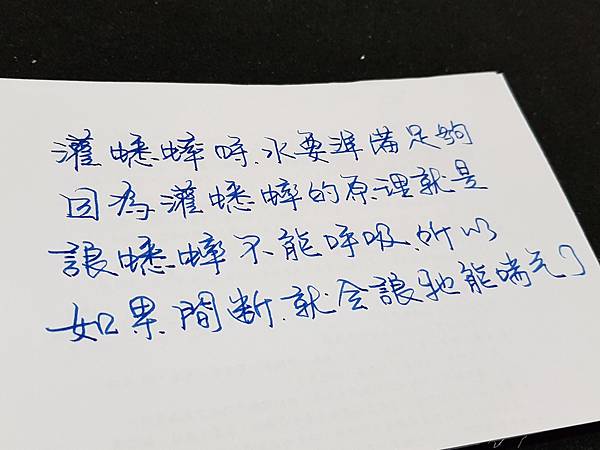 灌蟋蟀時.水要準備足夠
因為灌蟋蟀的原理就是
讓蟋蟀不能呼吸.所以
如果間斷.就会讓牠能喘氣了